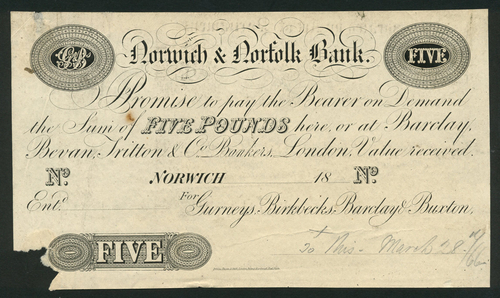 Norwich & Norfolk Bank.
FIVE
I Promise to pay the Bearer on Demand
the Sum of FIVE POUNDS here, or at Barclay,
Bevan, Tritton & Co. Bankers, London, Value received.
No. NORWICH 18 No.
Entd. For Gurneys, Birkbecks, Barclay & Buxton.
FIVE
To This - March 28